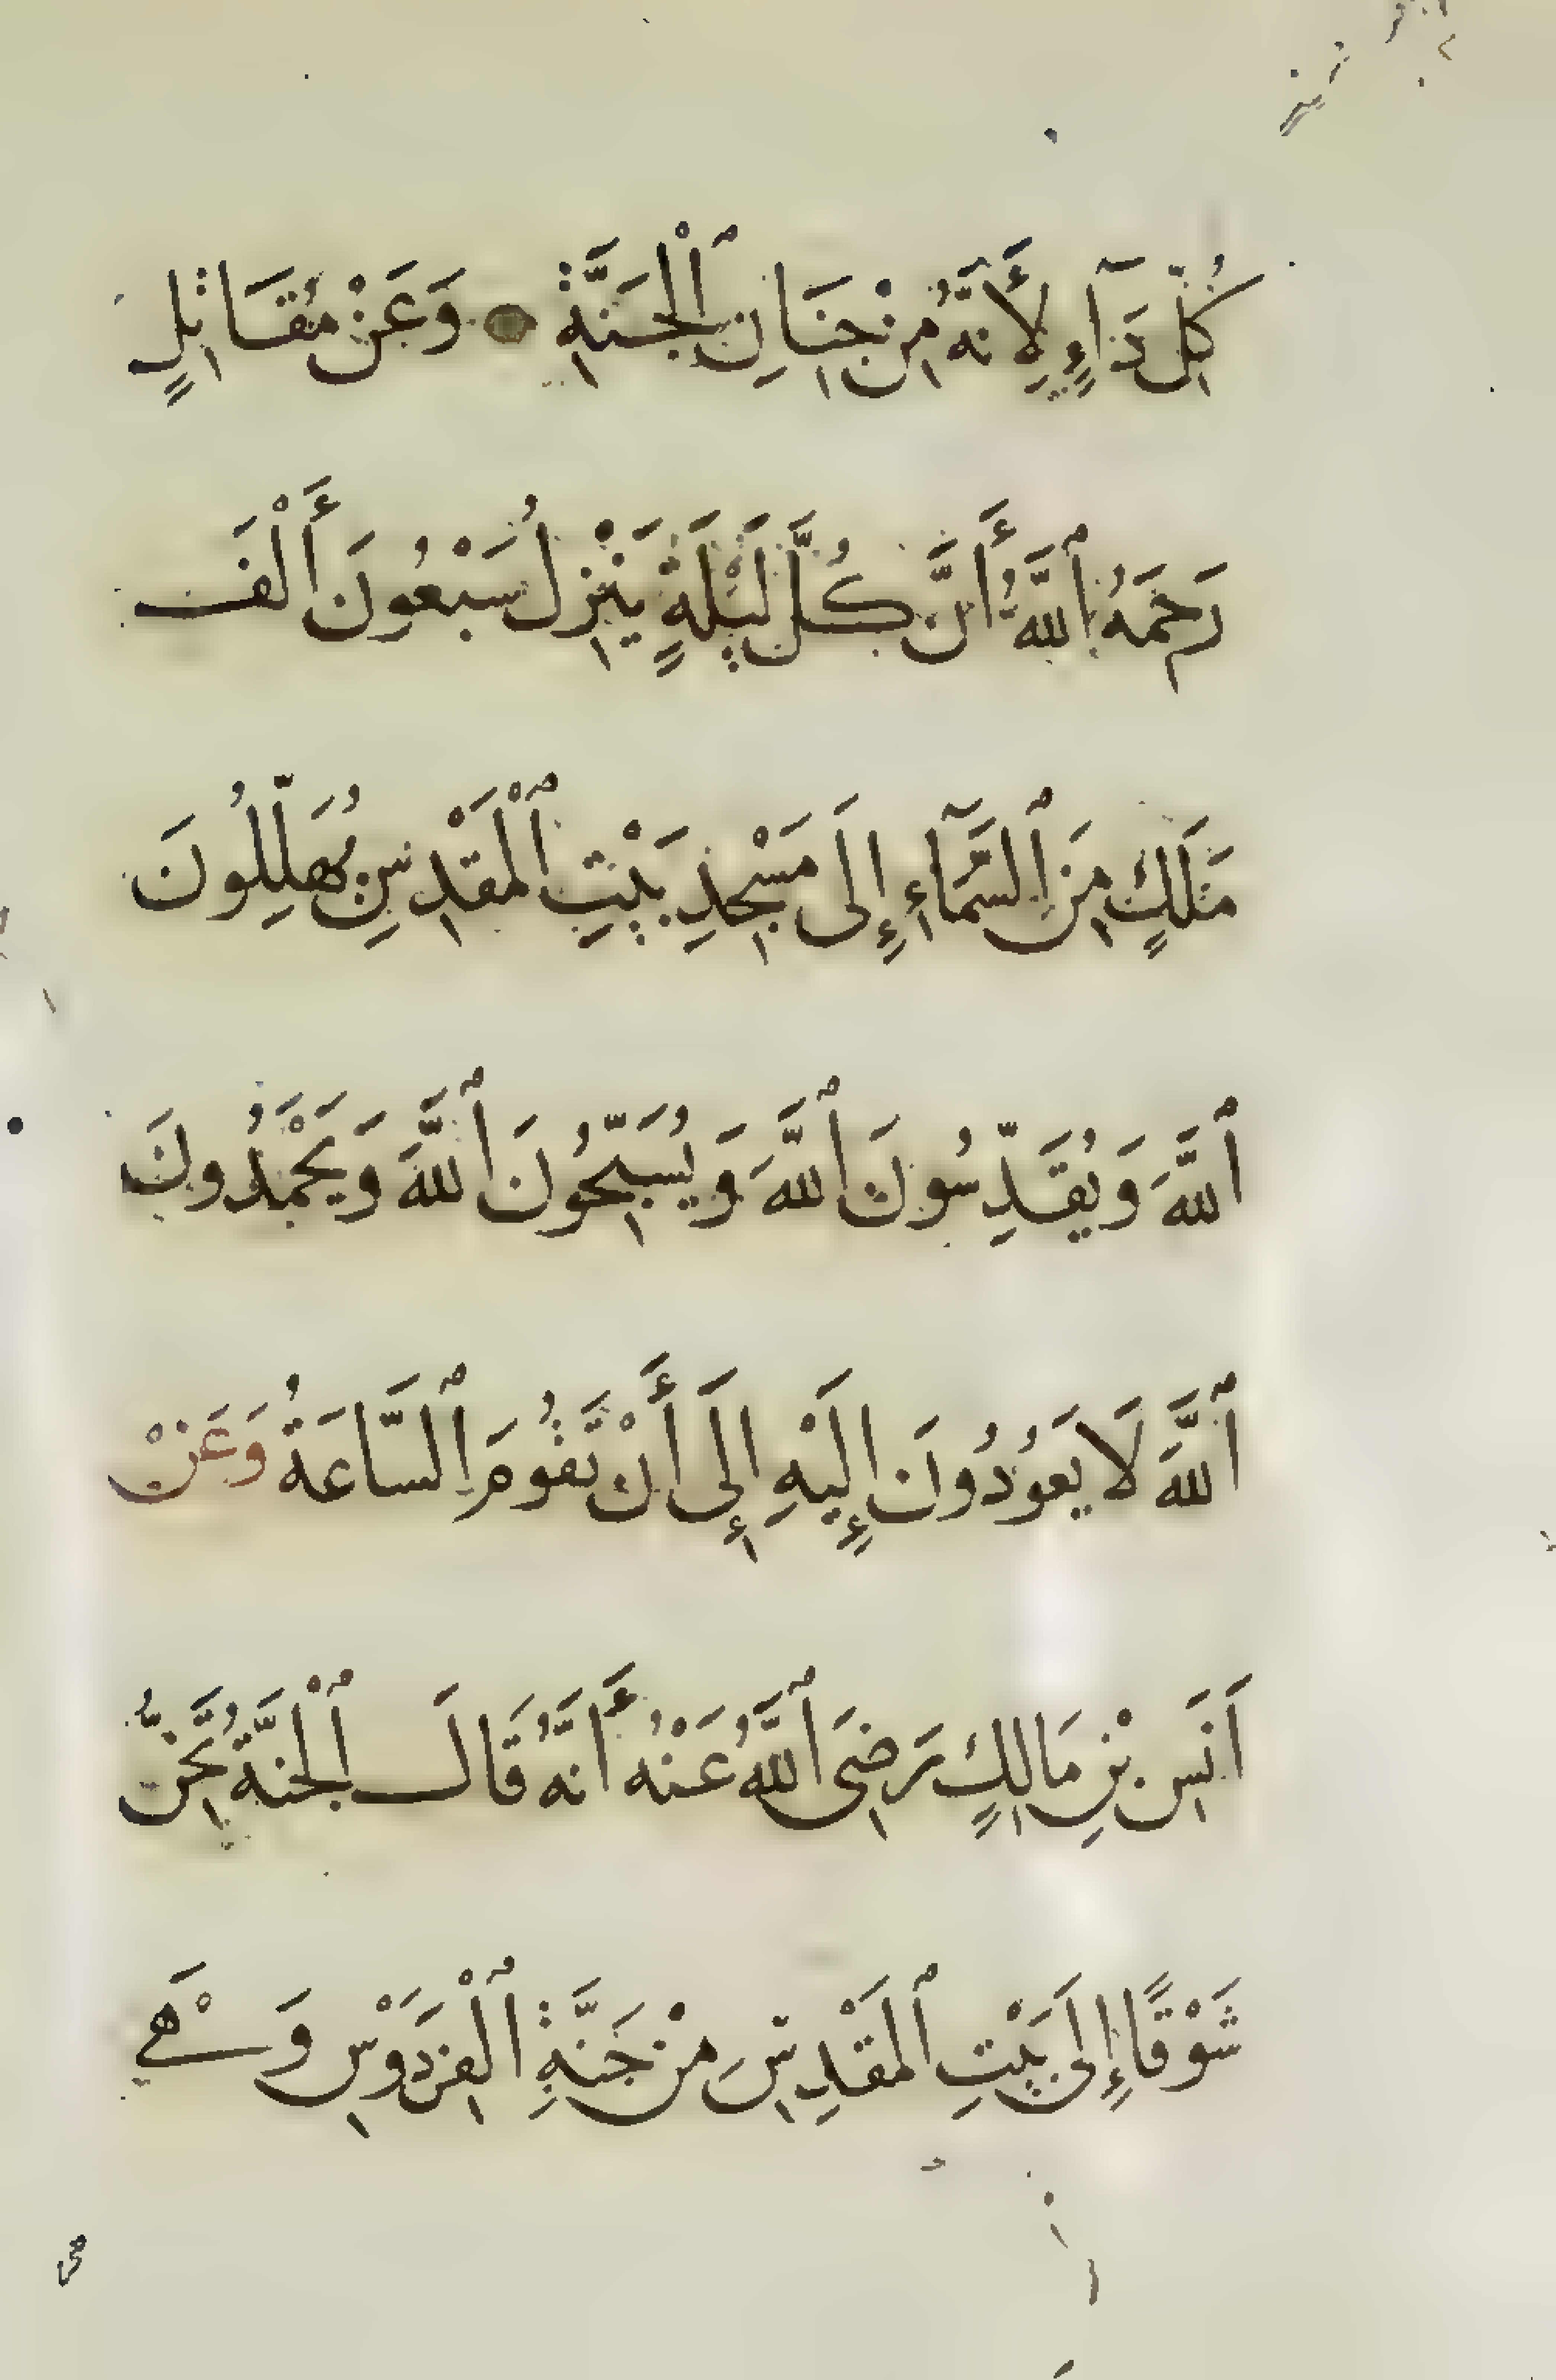 كُلِّ دَآءٍ لِأَنَّهُ مِنْ جِنَانِ ٱلْجَنَّةِ وَعَنْ مُقَاتِلٍ
رَحِمَهُ ٱللَّهُ أَنَّ كُلَّ لَيْلَةٍ يَنْزِلُ سَبْعُونَ أَلْفَ
مَلَكٍ مِنَ ٱلسَّمَآءِ إِلَى مَسْجِدِ بَيْتِ ٱلْمَقْدِسِ يُهَلِّلُونَ
ٱللَّهَ وَيُقَدِّسُونَ ٱللَّهَ وَيُسَبِّحُونَ ٱللَّهَ وَيَحْمَدُونَ
ٱللَّهَ لَا يَعُودُونَ إِلَيْهِ إِلَى أَنْ تَقُومَ ٱلسَّاعَةُ وَعَنْ
اَنَسِ بْنِ مَالِكٍ رَضِىَ ٱللَّهُ عَنْهُ أَنَّهُ قَالَ ٱلْجَنَّةُ تَحِنُّ
شَوْقًا إِلَى بَيْتِ ٱلْمَقْدِسِ مِنْ جَنَّةِ ٱلْفِرْدَوْسِ وَهْيَ